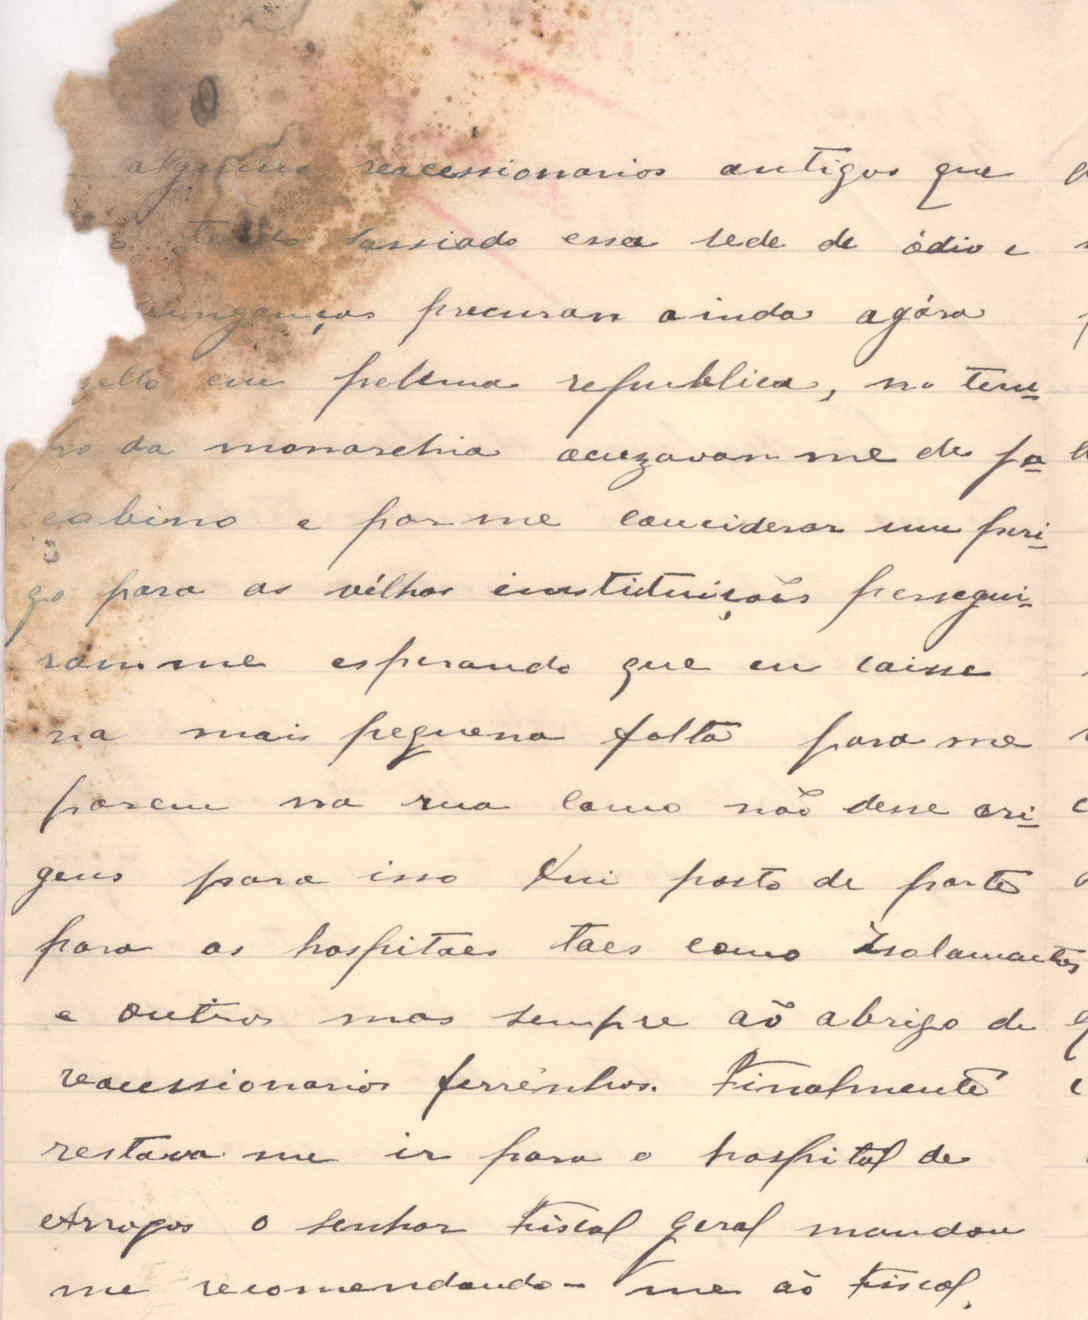 alguns reacessionarios antigos que
tendo sassiado essa sede de ódio e
vinganças procuran ainda agóra
em pelena republica, no tem-
po da monarchia acuzavan me de ja-
cabino e por me conciderar um piri-
go para as vélhas instituições persegui-
ram me esperando que eu caisse
na mais pequena falta para me
porem na rua como não desse ori-
gens para isso fui posto de parte
para os hospitaes taes como Isolamantos
e outros mas sempre aõ abrigo de
reacessionarios ferrênhos. Finalmente
restava me ir para o hospital de
Arroyos o senhor Fiscal geral mandou
me recomendando-me aõ Fiscal,